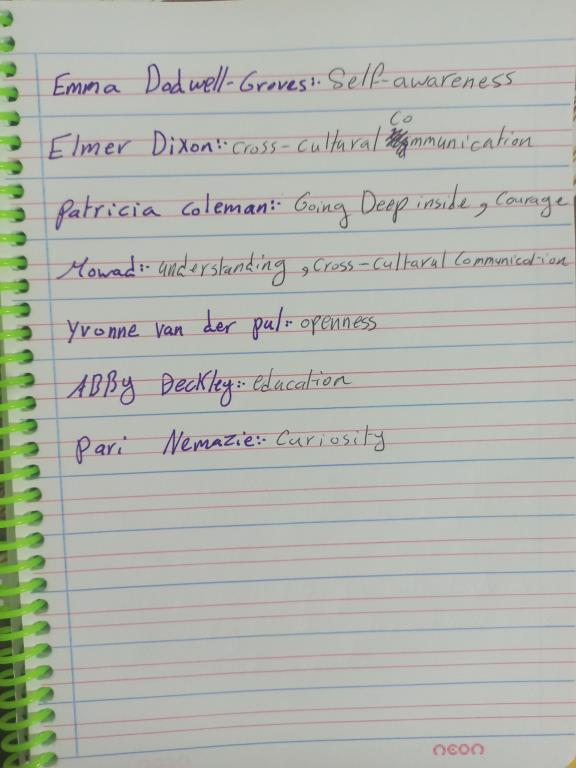 Emma Dodwell-Groves:- Self-awareness
Elmer Dixon:- cross-cultural Communication
Patricia Coleman:- Going Deep inside, Courage
Mowad:- understanding, cross-cultural Communication
Yvonne van der pul:- openness
ABBy Deckley:- education
Pari Nemazie:- Curiosity
neon